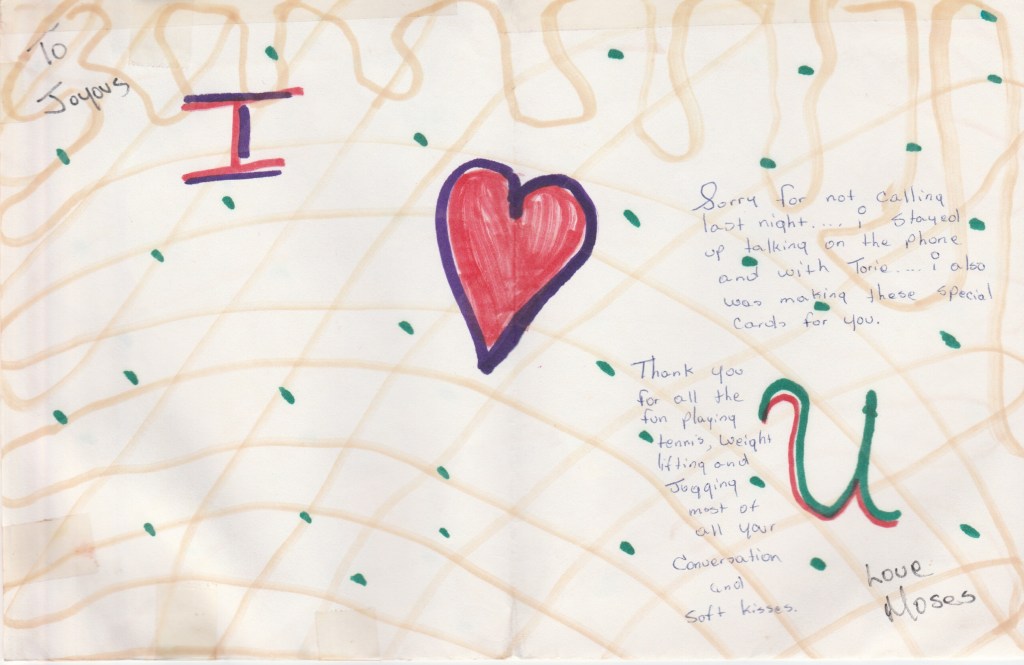 To
Joyous
I
Sorry for not calling
last night.... i stayed
up talking on the phone
and with Torie.... i also
was making these special
cards for you.
Thank you
for all the
fun playing
tennis, weight
lifting and
Jogging
most of
all your
Conversation
and
soft kisses.
U
Love
Moses